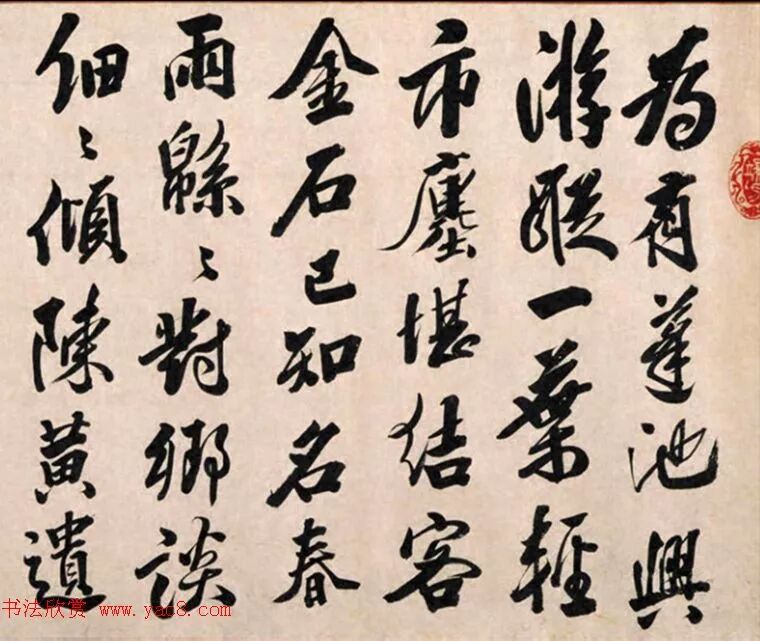 為有蓬池興
游蹤一葉輕
市塵堪結客
金石已知名
春雨緜〻對鄉談
細〻傾陳黃遺
书法欣赏 www.yac8.com